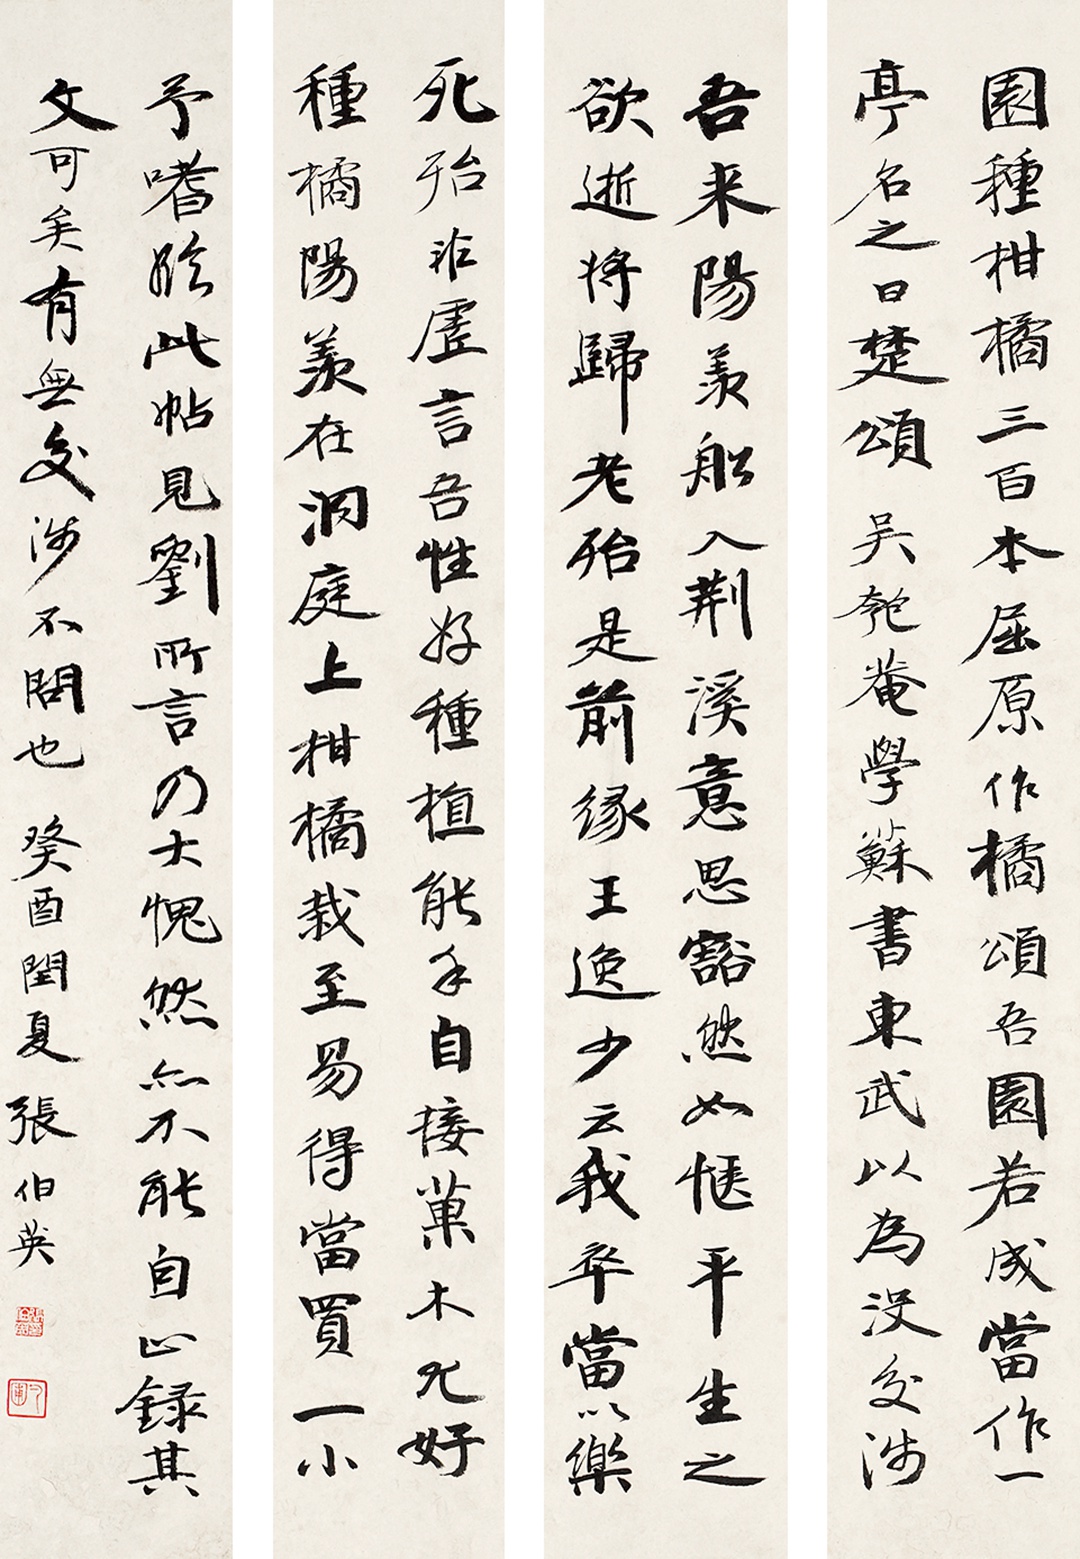 園種柑橘三百本屈原作橘頌吾園若成當作一
亭名之曰楚頌 吳匏菴學蘇書東武以為沒交涉
吾来陽羨船入荆溪意思豁然如愜平生之
欲逝將歸老殆是前緣王逸少云我卒當以樂
死殆非虛言吾性好種植能手自接菓木尤好
種橘陽羨在洞庭上柑橘栽至易得當買一小
予嗜於此帖見劉所言乃大愧然亦不能自止錄其
文可矣有無交涉不問也 癸酉閏夏 張伯英